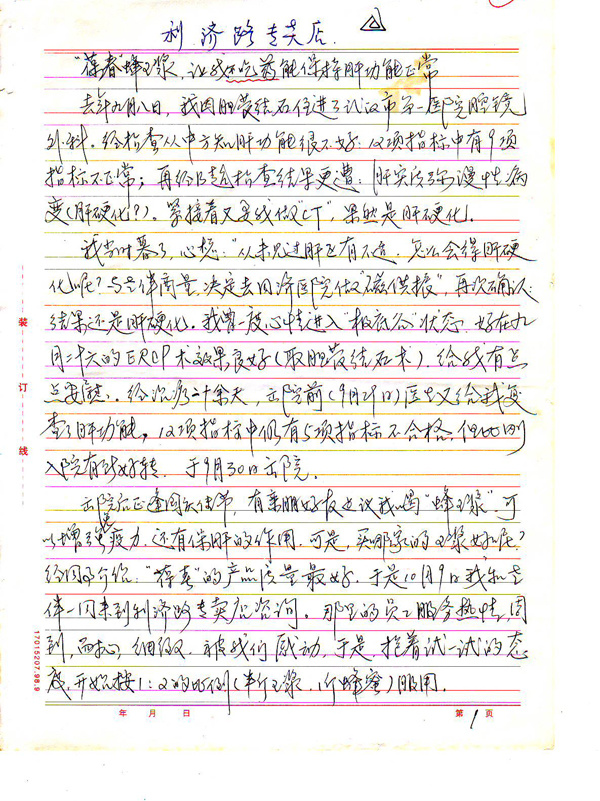 利济路专卖店
"葆春"蜂王浆,让我不吃药能保持肝功能正常
去年九月八日,我因胆管结石住进了武汉市第一医院腔镜
外科。经检查从中方知肝功能很不好:12项指标中有9项
指标不正常;再经B超检查结果更遭:肝实质弥漫性病
变(肝硬化?)。紧接着又要我做"CT",果然是肝硬化。
我当时蒙了,心想:"从未觉过肝区有不适,怎么会得肝硬
化呢?与老伴商量,决定去同济医院做"磁供振",再次确认
结果还是肝硬化。我曾一度心情进入"极底谷"状态,好在九
月二十六的ERCP术效果良好(取胆管结石术),给我有点
点安慰。经治疗二十余天,出院前(9月29日)医生又给我复
查了肝功能,12项指标中仍有5项指标不合格,但比刚
入院有所好转。于9月30日出院。
出院后正逢国庆佳节,有亲朋好友也议我喝"蜂王浆",可
以增强免疫力,还有保肝的作用。可是,买哪家的王浆好呢?
经同事介绍:"葆春"的产品质量最好。于是10月9日我和老
伴一同来到利济路专卖店咨询。那里的员工服务热情,周
到,耐心,细致,被我们感动,于是,抱着试一试的态
度,开始按1:2的比例(半斤王浆,1斤蜂蜜)服用。
装
订
线
17015207.98.9
年 月 日
第 1 页